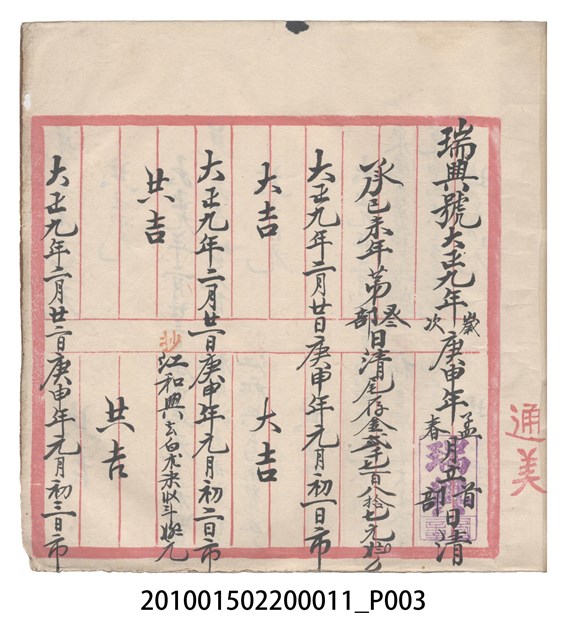 瑞興號大正九年歲次庚申年孟春月立首部日清
承己未年第叁部日清尾存金
大正九年二月廿日庚申年元月初一日市
大吉
大吉
大正九年二月廿一日庚申年元月初二日市
抄江和興去白
共吉
共吉
大正九年二月廿二日庚申年元月初三日市
通美
201001502200011_P003